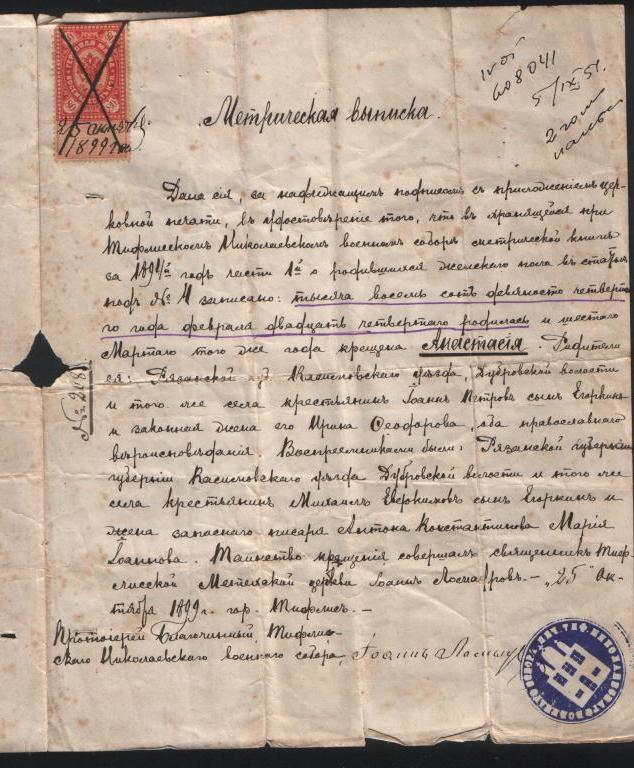 25 октяб.
1899 года
5/IX 51.
Метрическая выписка.
Дана сія, за надлежащимъ подписомъ съ приложеніемъ цер-
ковной печати, въ удостовѣреніе того, что въ хранящейся при
Тифлисскомъ Николаевскомъ военномъ соборѣ метрической книгѣ
за 1894й годъ части 1й о родившихся женскаго пола въ статьѣ
подъ № 4 записано: тысяча восемь сотъ девяносто четверта
го года февраля двадцать четвертаго родилась и шестого
Марта того же года крещена Анастасія. Родители
ея: Рязанской губ. Касимовскаго уѣзда, Дубровской волости
и того же села крестьянинъ Іоаннъ Петровъ сынъ Егоркинъ
и законная жена его Ирина Ѳеодорова, оба православнаго
вѣроисповѣданія. Воспреемниками были: Рязанской губерніи
губерніи Касимовскаго уѣзда Дубровской волости и того же
села крестьянинъ Михаилъ Евфимовъ сынъ Егоркинъ и
жена запаснаго писаря Антона Константинова Марія
Іоаннова. Таинство крещенія совершалъ священникъ Тиф-
лисской Метехской церкви Іоаннъ – „25“ Ок-
тября 1899 г. гор. Тифлисъ. –
Протоіерей Благочинный, Тифлис-
скаго Николаевскаго военнаго собора, Іоаннъ